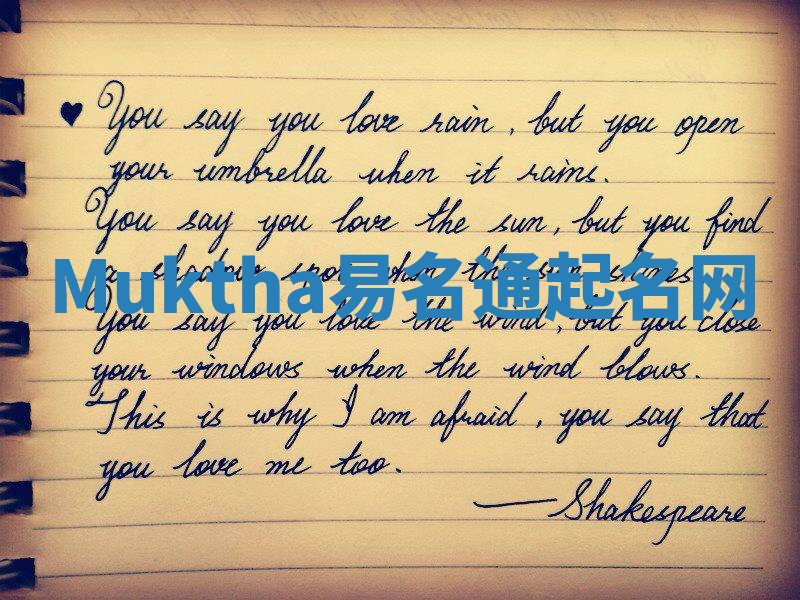 ♥ You say you love rain, but you open
your umbrella when it rains.
You say you love the sun, but you find
a shadow spot when the sun shines.
Muktha易名通起名网
You say you love the wind, but you close
your windows when the wind blows.
This is why I am afraid, you say that
you love me too.
—Shakespeare